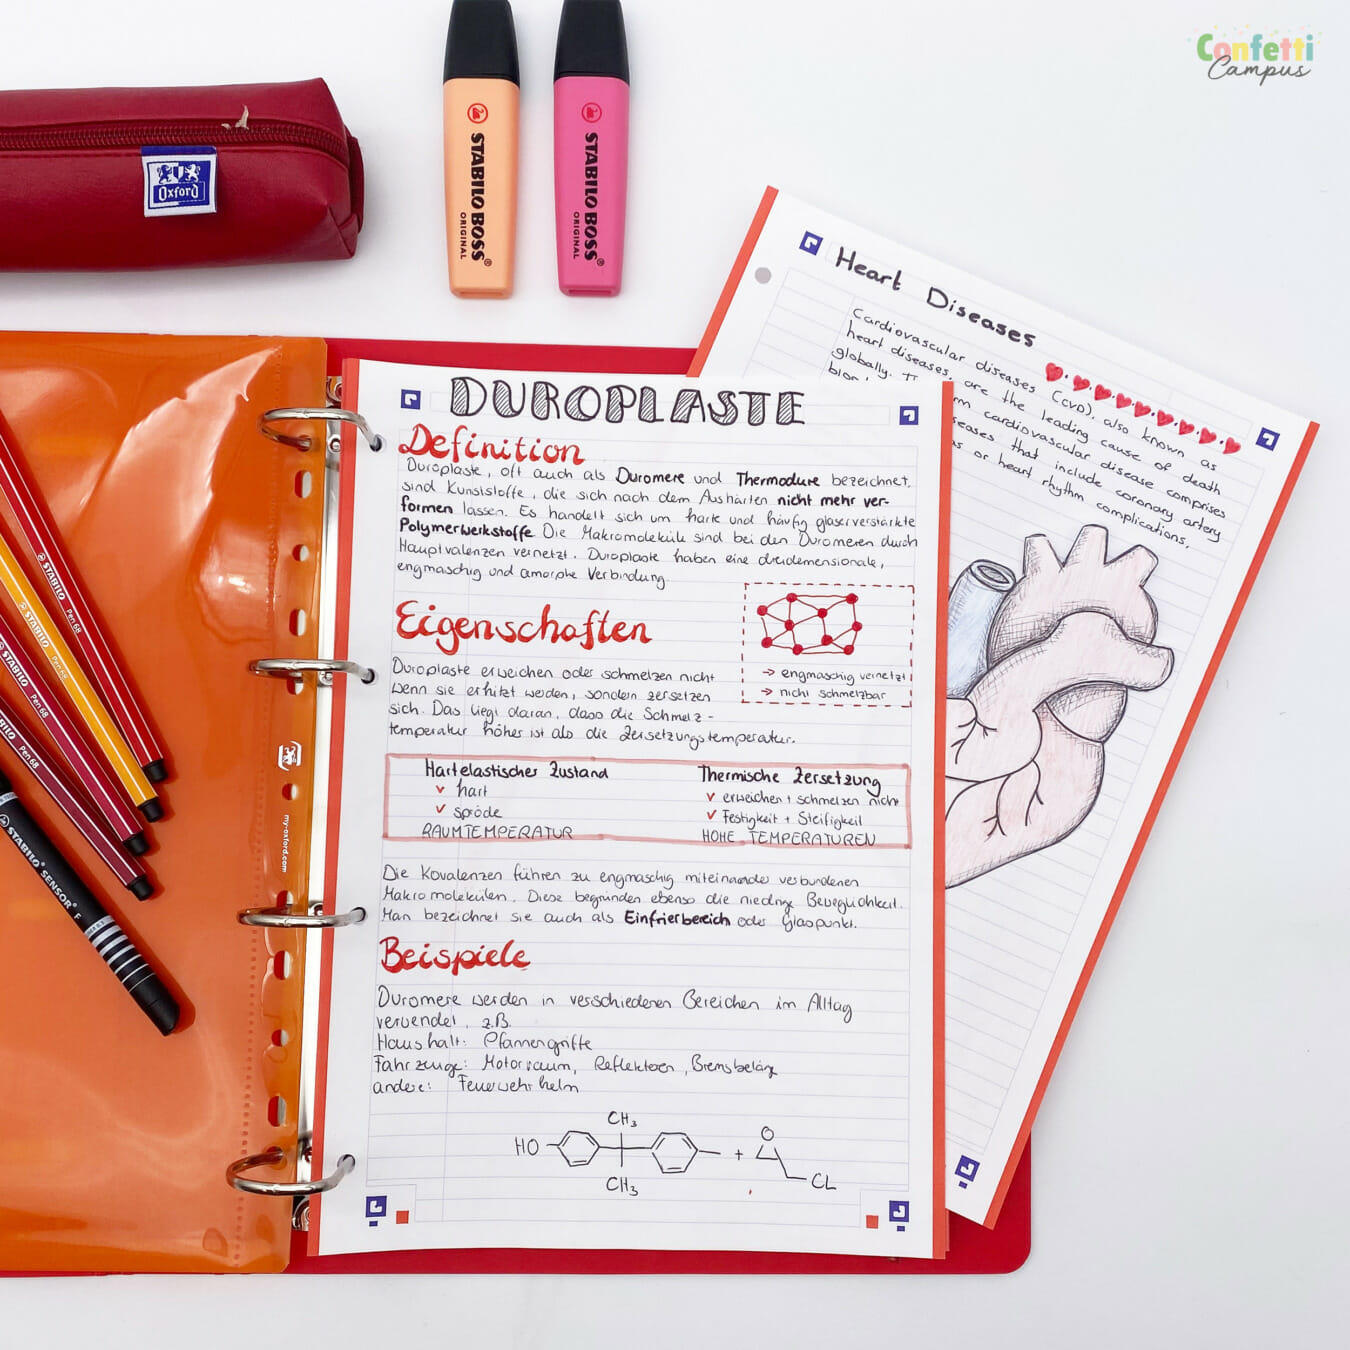 Confetti
Campus
Oxford
STABILO BOSS®
ORIGINAL
STABILO BOSS®
ORIGINAL
DUROPLASTE
Definition
Duroplaste, oft auch als Duromere und Thermodure bezeichnet,
sind Kunststoffe, die sich nach dem Aushärten nicht mehr ver-
formen lassen. Es handelt sich um harte und häufig glasverstärkte
Polymerwerkstoffe Die Makromoleküle sind bei den Duromeren durch
Hauptvalenzen vernetzt. Duroplaste haben eine dreidemensionale,
engmaschig und amorphe Verbindung.
Eigenschaften
Duroplaste erweichen oder schmelzen nicht
wenn sie erhitzt werden, sondern zersetzen
sich. Das liegt daran, dass die Schmelz-
temperatur höher ist als die Zersetzungstemperatur.
→ engmaschig vernetzt
→ nicht schmelzbar
Hartelastischer Zustand
✓ hart
✓ spröde
RAUMTEMPERATUR
Thermische Zersetzung
✓ erweichen + schmelzen nicht
✓ Festigkeit + Steifigkeit
HOHE TEMPERATUREN
Die Kovalenzen führen zu engmaschig miteinander verbundenen
Makromolekülen. Diese begründen ebenso die niedrige Beweglichkeit.
Man bezeichnet sie auch als Einfrierbereich oder Glaspunkt.
Beispiele
Duromere werden in verschiedenen Bereichen im Alltag
verwendet, z.B.
Haushalt: Pfannengriffe
Fahrzeuge: Motorraum, Reflektoren, Bremsbeläge
andere: Feuerwehrhelm
CH3
HO + O
CL
CH3
Heart Diseases
Cardiovascular diseases (CVD), also known as
heart diseases, are the leading cause of death
globally. rm cardiovascular disease comprises
seases that include coronary artery
s or heart rhythm complications.
STABILO Pen 68
STABILO Pen 68
STABILO Pen 68
STABILO Pen 68
STABILO® SENSOR® F
my-oxford.com